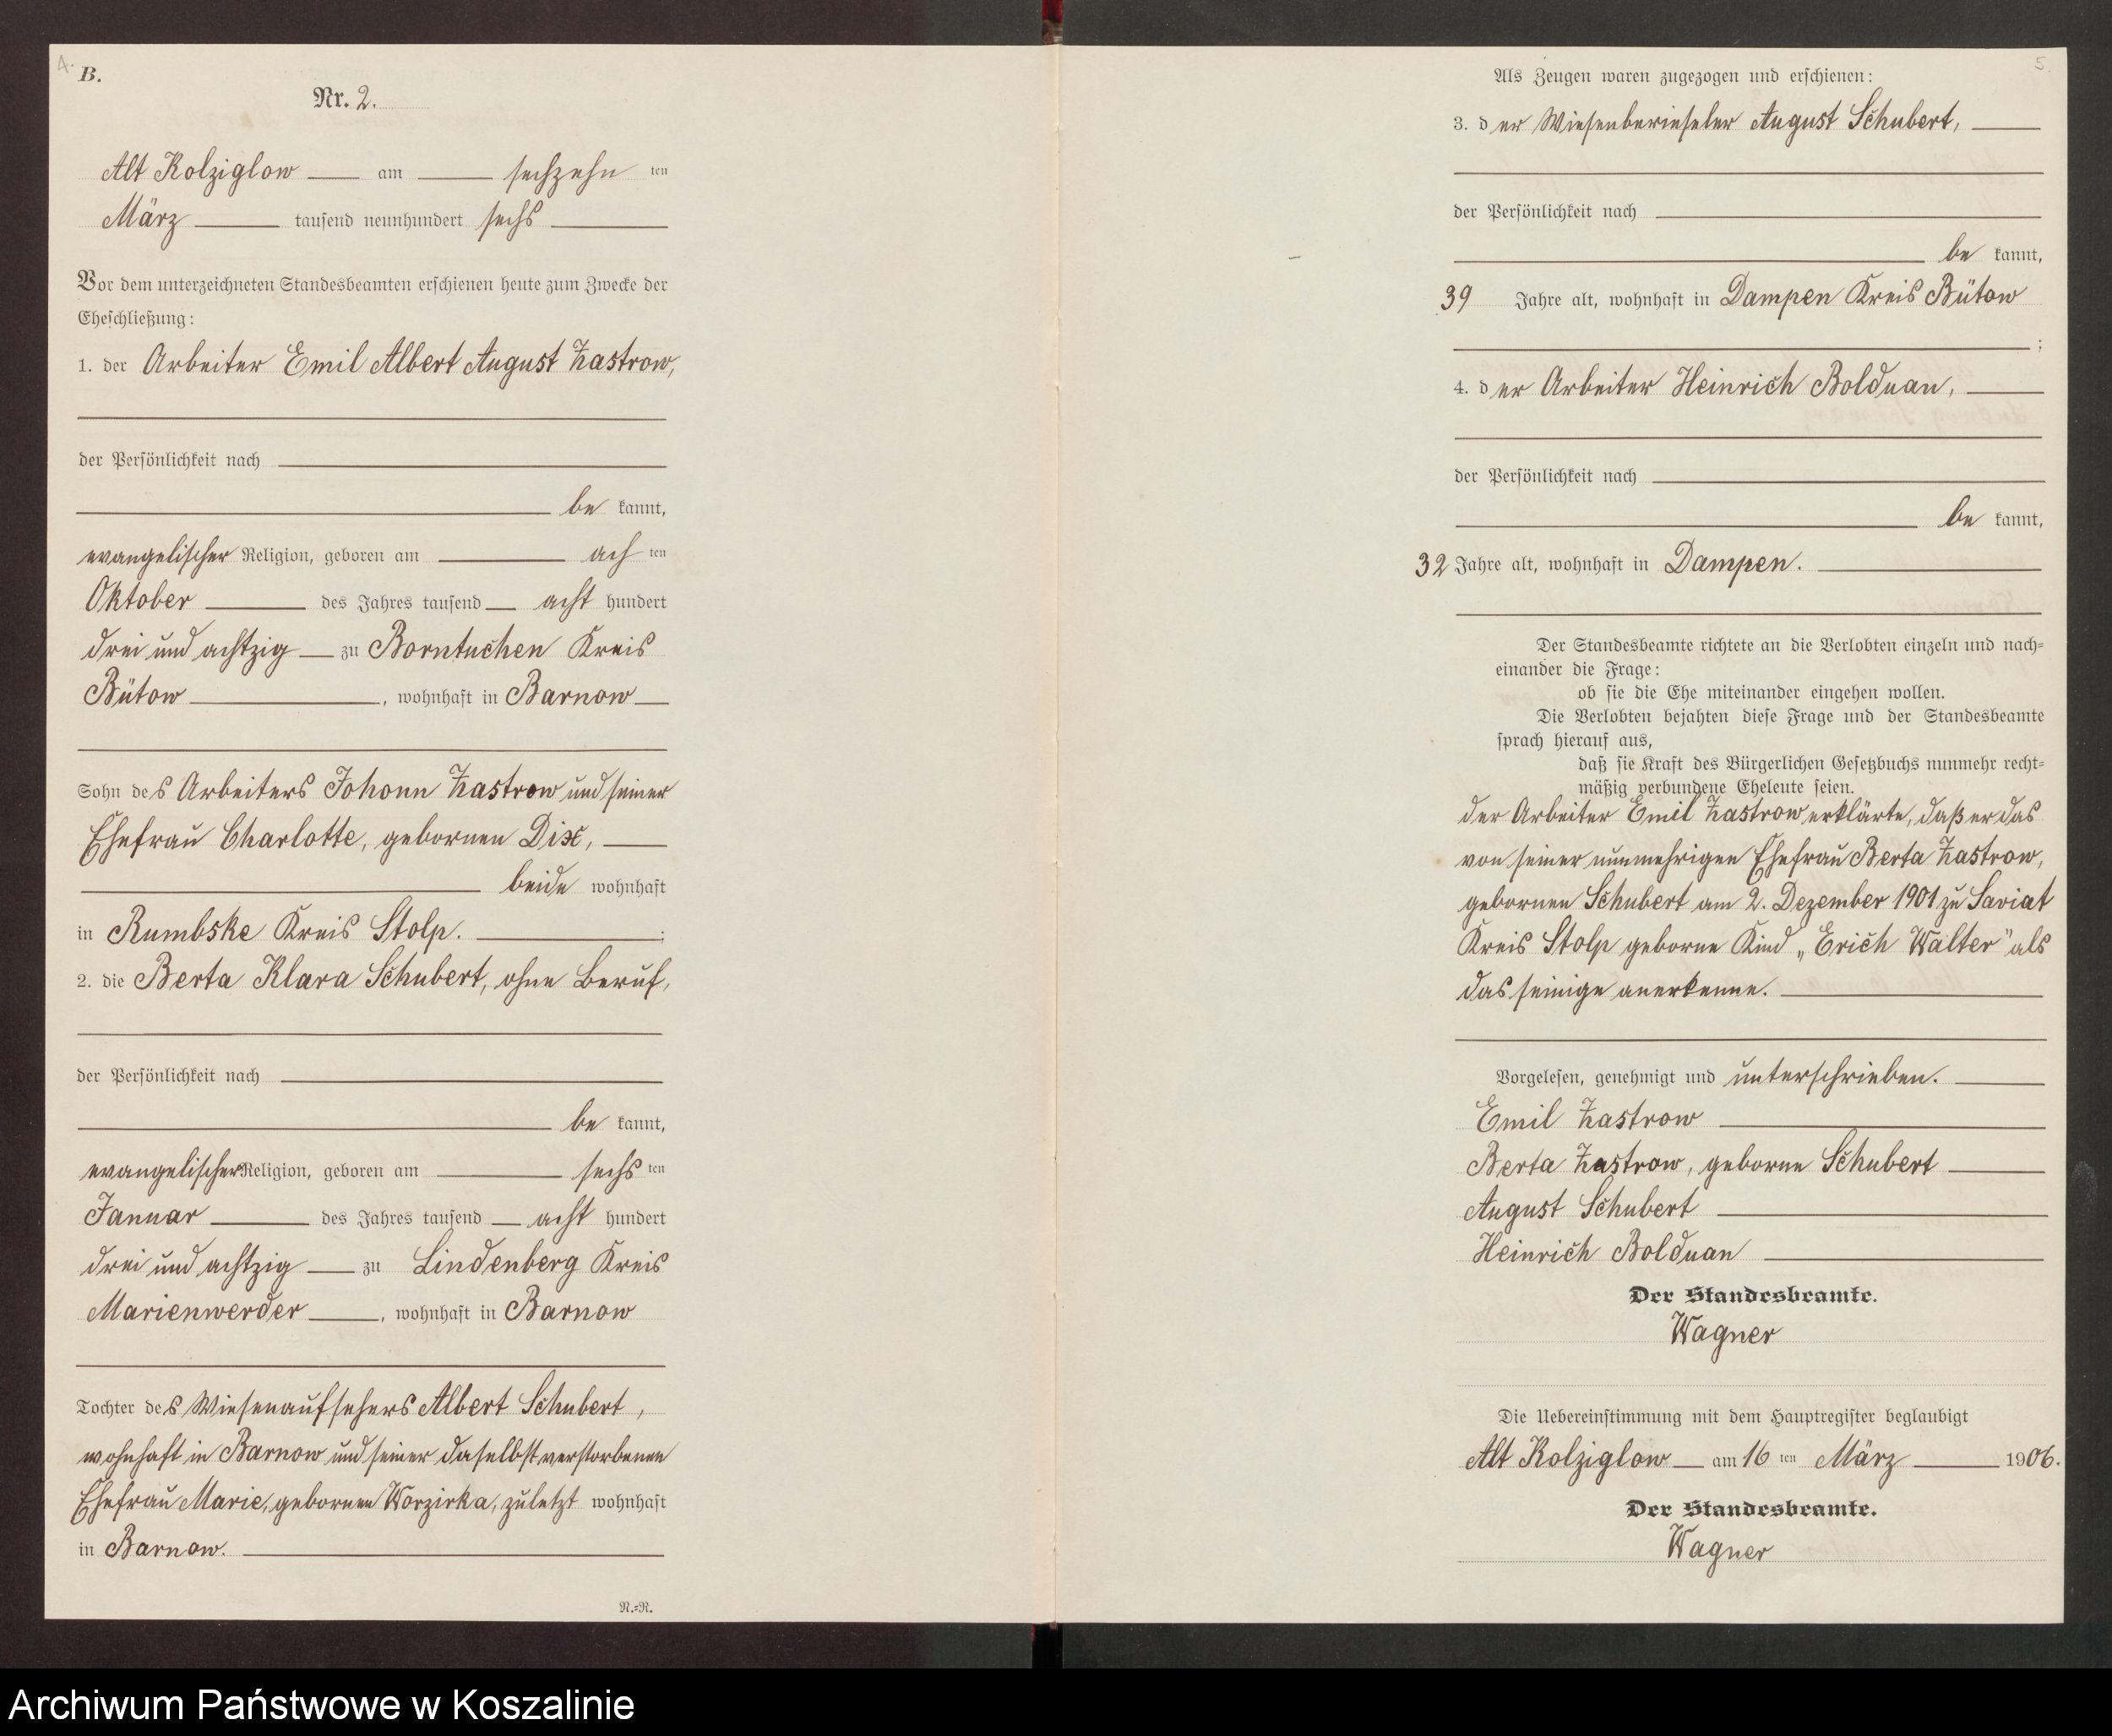 4.
B.
Nr. 2.
Alt Kolziglow am sechzehn ten
März tausend neunhundert sechs
Vor dem unterzeichneten Standesbeamten erschienen heute zum Zwecke der
Eheschließung:
1. der Arbeiter Emil Albert August Zastrow,
der Persönlichkeit nach
be kannt,
evangelischer Religion, geboren am ach ten
Oktober des Jahres tausend acht hundert
drei und achtzig zu Borntuchen Kreis
Bütow, wohnhaft in Barnow
Sohn des Arbeiters Johann Zastrow und seiner
Ehefrau Charlotte, gebornen Dix,
beide wohnhaft
in Rumbske Kreis Stolp. ;
2. die Berta Klara Schubert, ohne Beruf,
der Persönlichkeit nach
be kannt,
evangelischer Religion, geboren am sechs ten
Januar des Jahres tausend acht hundert
drei und achtzig zu Lindenberg Kreis
Marienwerder, wohnhaft in Barnow
Tochter des Wiesenaufsehers Albert Schubert,
wohnhaft in Barnow und seiner daselbst verstorbenen
Ehefrau Marie, gebornen Worzirka, zuletzt wohnhaft
in Barnow.
N.=N.
5.
Als Zeugen waren zugezogen und erschienen:
3. der Wiesenberieseler August Schubert,
der Persönlichkeit nach
be kannt,
39 Jahre alt, wohnhaft in Dampen Kreis Bütow
;
4. der Arbeiter Heinrich Bolduan,
der Persönlichkeit nach
be kannt,
32 Jahre alt, wohnhaft in Dampen.
Der Standesbeamte richtete an die Verlobten einzeln und nach=
einander die Frage:
ob sie die Ehe miteinander eingehen wollen.
Die Verlobten bejahten diese Frage und der Standesbeamte
sprach hierauf aus,
daß sie Kraft des Bürgerlichen Gesetzbuchs nunmehr recht=
mäßig verbundene Eheleute seien.
der Arbeiter Emil Zastrow erklärte, daß er das
von seiner nunmehrigen Ehefrau Berta Zastrow,
gebornen Schubert am 2. Dezember 1901 zu Saviat
Kreis Stolp geborne Kind „Erich Walter" als
das seinige anerkenne.
Vorgelesen, genehmigt und unterschrieben.
Emil Zastrow
Berta Zastrow, geborne Schubert
August Schubert
Heinrich Bolduan
Der Standesbeamte.
Wagner
Die Uebereinstimmung mit dem Hauptregister beglaubigt
Alt Kolziglow am 16 ten März 1906.
Der Standesbeamte.
Wagner
Archiwum Państwowe w Koszalinie